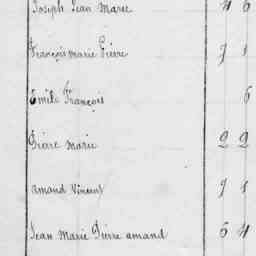 Joseph Jean Marie 4 6
François marie Pierre 7 1
Emile François 6
Pierre marie 2 2
amand Vincent 9 1
Jean Marie Pierre amand 5 4